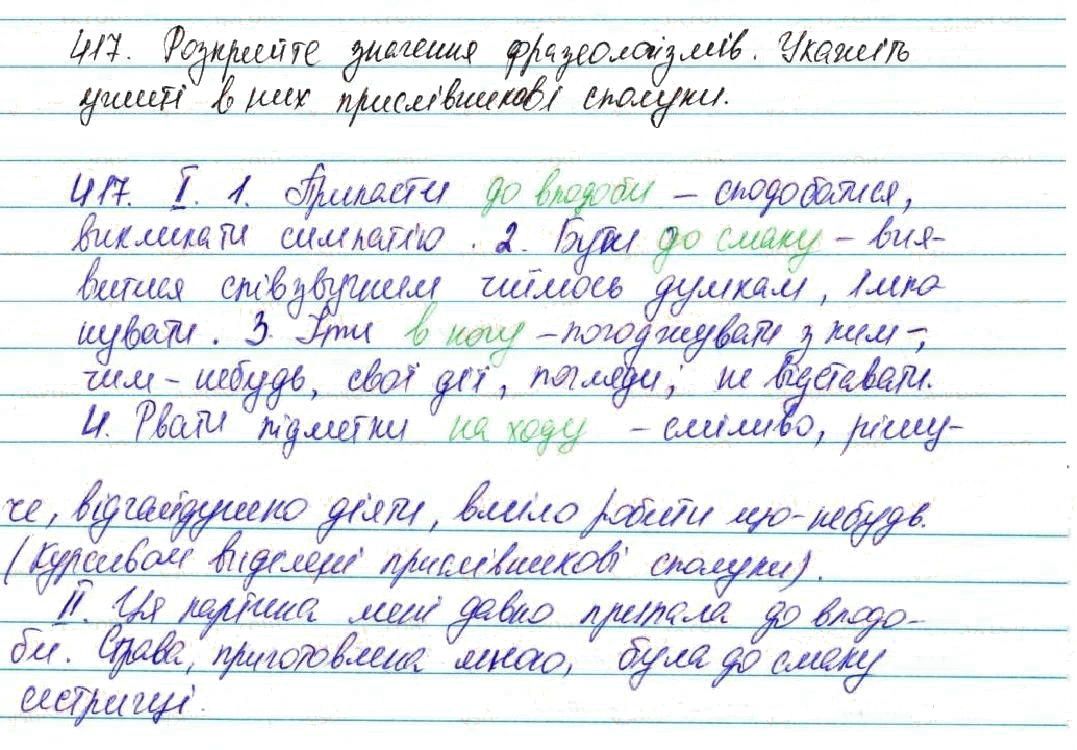 417. Розкрийте значення фразеологізмів. Укажіть
ужиті в них прислівникові сполуки.
417. I. 1. Припасти до вподоби – сподобатися,
викликати симпатію. 2. Бути до смаку – вия-
витися співзвучним чиїмось думкам, імпо
нувати. 3. Іти в ногу – погоджувати з ким-,
чим-небудь, свої дії, погляди; не відставати.
4. Рвати підметки на ходу – сміливо, рішу-
че, відчайдушно діяти, вміло робити що-небудь.
(Курсивом виділені прислівникові сполуки).
II. Ця картина мені давно припала до вподо-
би. Страва, приготовлена мною, була до смаку
сестричці.